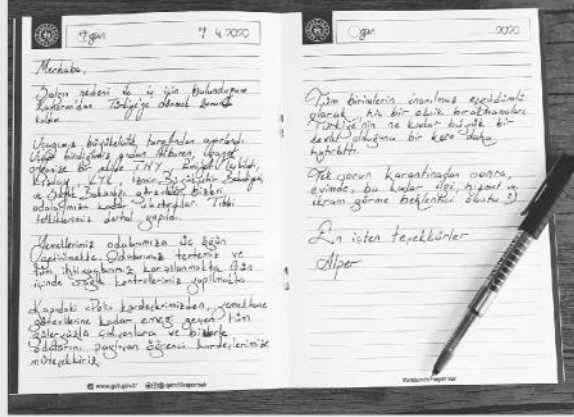 7 gün 7.4.2020
Merhaba,
Salgın nedeni ile iş için bulunduğum
'dan Türkiye'ye dönmek zorunda
kaldım.
Uçağımız büyükelçilik tarafından ayarlandı.
Uçağa bindiğimiz andan itibaren, gayet
organize bir şekilde THY, Emniyet,
Kızılay, KYK, İzmir Büyükşehir Belediyesi
ve Sağlık Bakanlığı görevlileri bizleri
odalarımıza kadar ulaştırdılar. Tıbbi
tetkiklerimiz derhal yapıldı.
Yemeklerimiz odalarımıza üç öğün
getirilmekte. Odalarımız tertemiz ve
tüm ihtiyaçlarımız karşılanmakta. Gün
içinde sağlık kontrollerimiz yapılmakta
Kapıdaki Polis kardeşlerimizden, yemekhane
görevlilerine kadar emeği geçen tüm
güleryüzlü çalışanlara ve bizlerle
odalarını paylaşan öğrenci kardeşlerimize
müteşekkiriz.
www.gsb.gov.tr genclikspor
gün 2020
Tüm birimlerin inanılmaz eşgüdümlü
olarak, hiç bir eksik bırakmamaları
Türkiye'nin ne kadar büyük bir
devlet olduğunu bir kere daha
hatırlattı.
Tek sorun karantinadan sonra,
evimde, bu kadar ilgi, hizmet ve
ikram görme beklentisi oluştu :)
En içten teşekkürler
Alper
Hayat Var